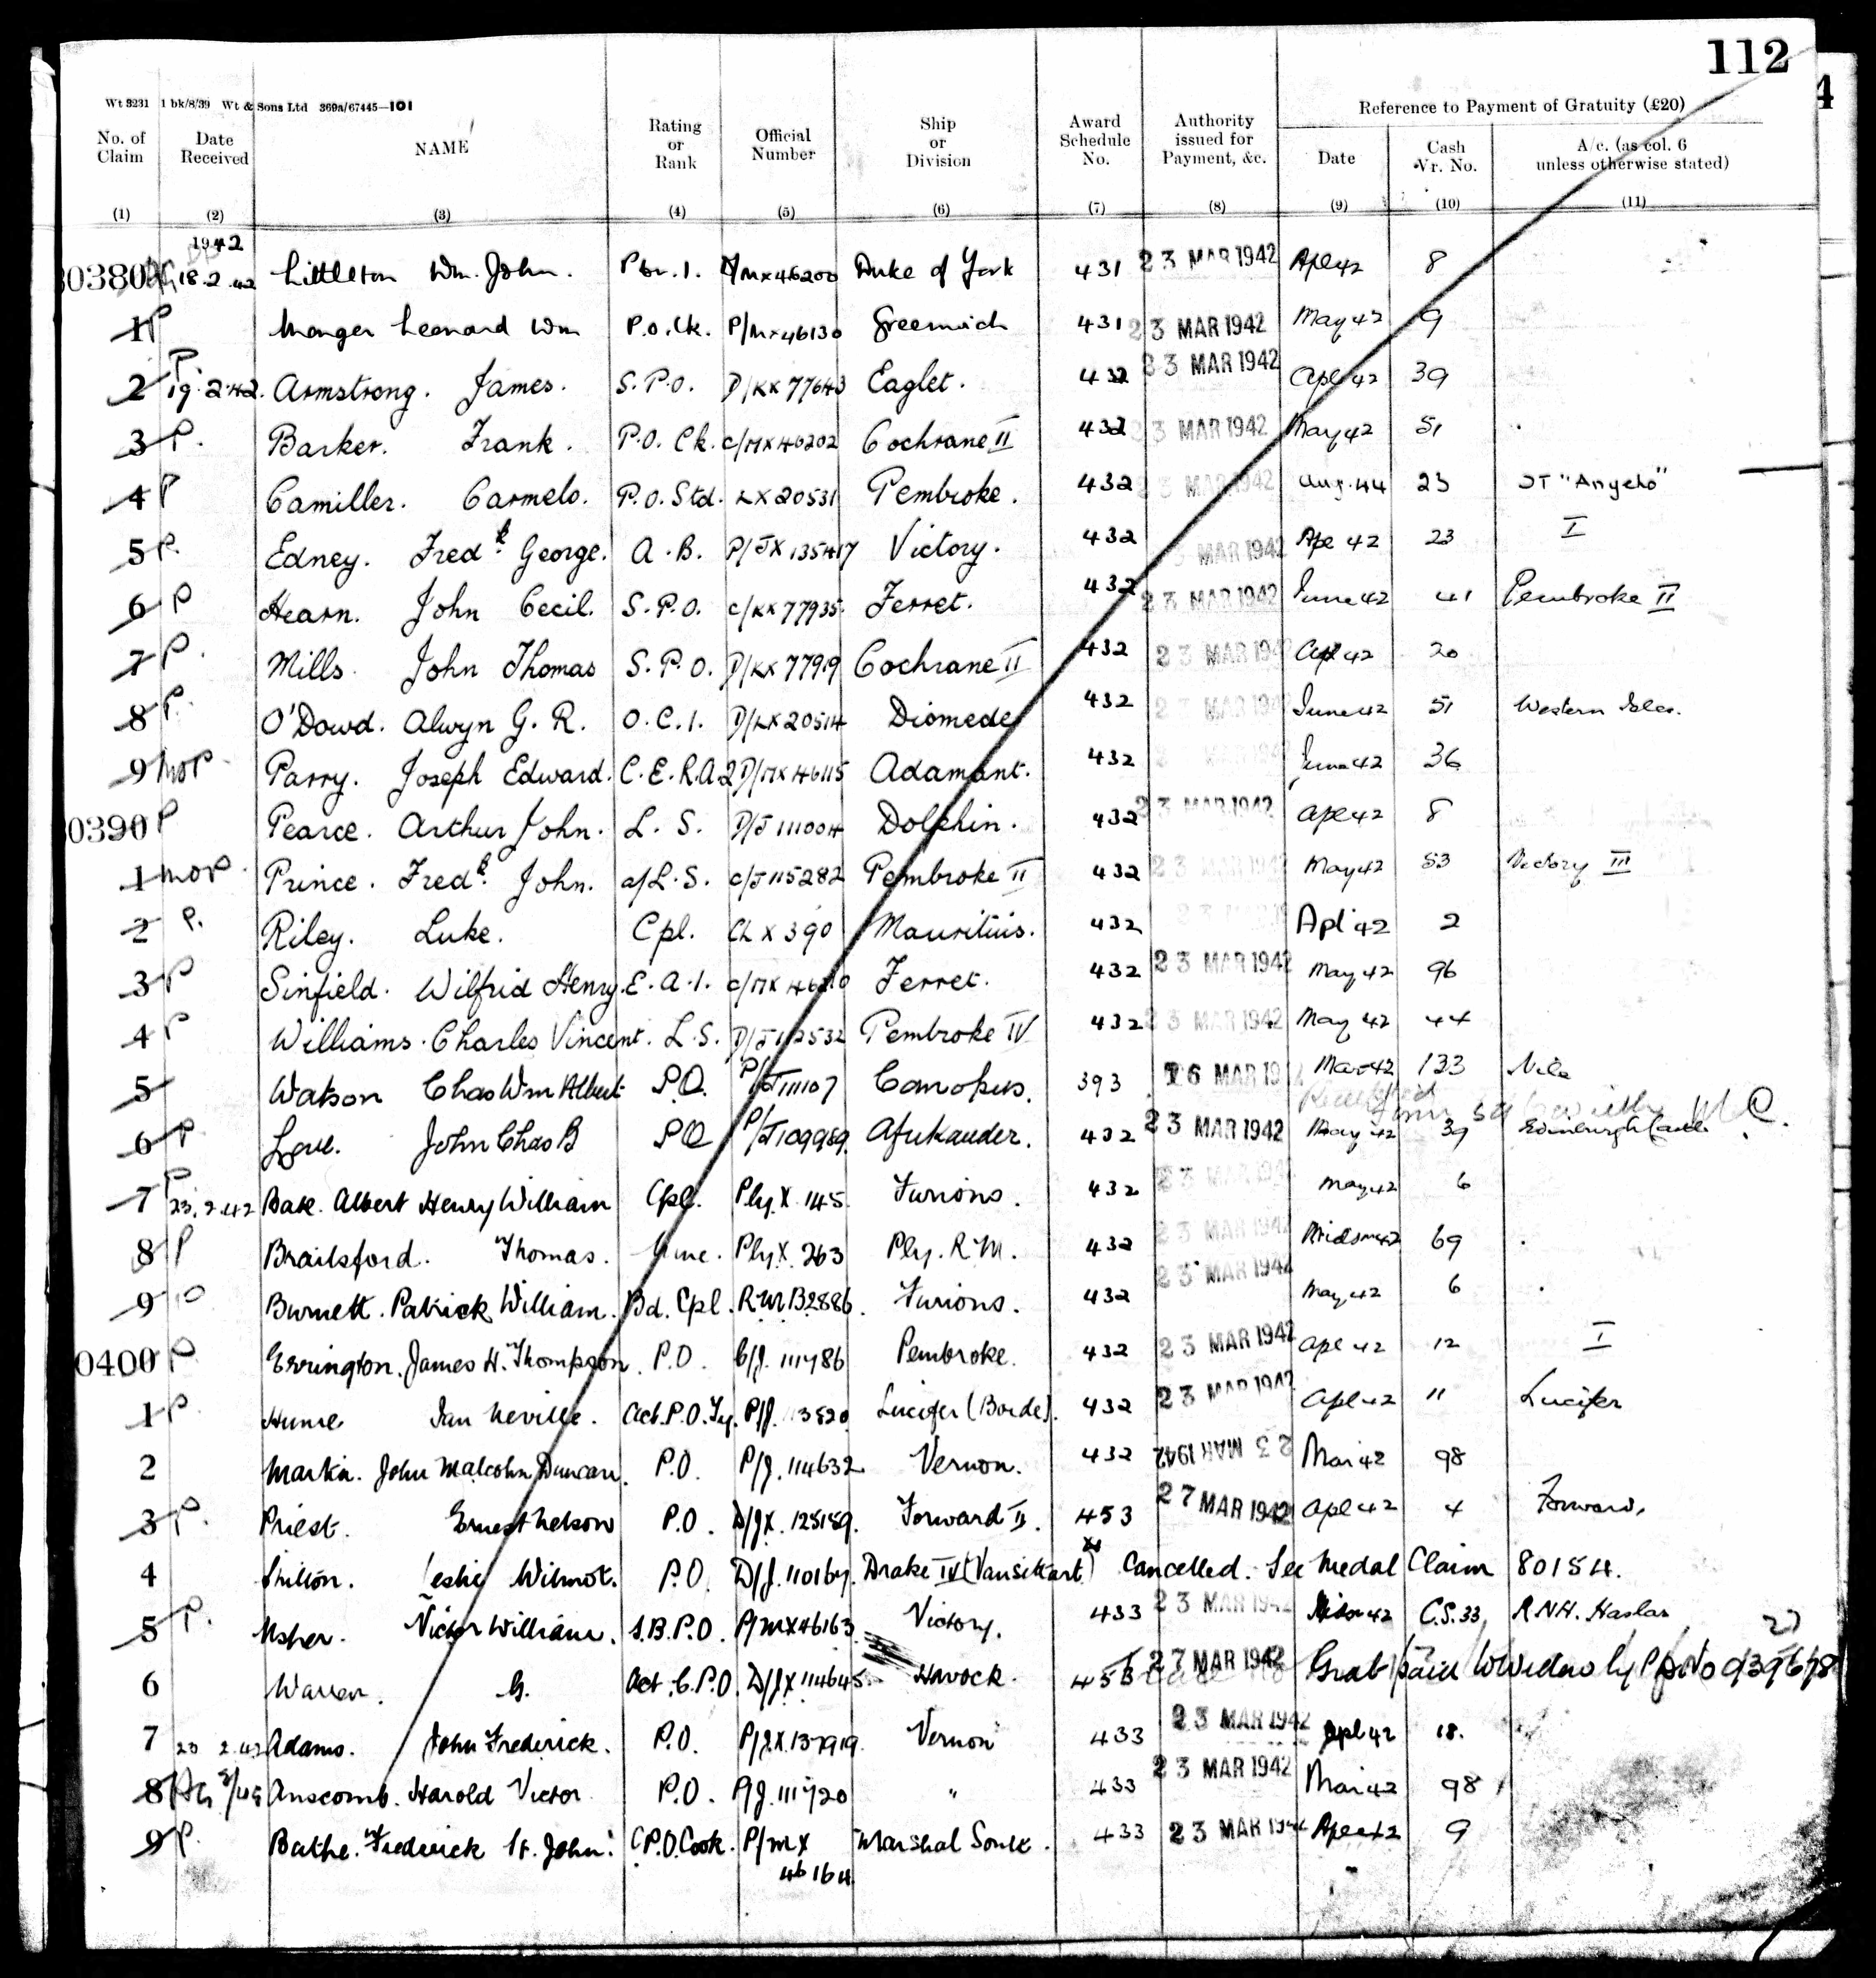 112
Wt 3231 1 bk/8/39 Wt & Sons Ltd 369a/67445—101
No. of Claim Date Received NAME Rating or Rank Official Number Ship or Division Award Schedule No. Authority issued for Payment, &c. Reference to Payment of Gratuity (£20) Date Cash Vr. No. A/c. (as col. 6 unless otherwise stated)
(1) (2) (3) (4) (5) (6) (7) (8) (9) (10) (11)
1942
0380 18.2.42 Littleton Wm. John. Ptr. 1. D/MX46200 Duke of York 431 23 MAR 1942 Ape 42 8
1 P Monger Leonard Wm P.O.Ck. P/MX46130 Greenwich 431 23 MAR 1942 May 42 9
2 P. 19.2.42. Armstrong. James. S.P.O. D/KX 77643 Eaglet. 432 23 MAR 1942 Apl 42 39
3 P. Barker. Frank. P.O. Ck. C/MX46202 Cochrane II 432 23 MAR 1942 May 42 51
4 P Camiller. Carmelo. P.O. Std. LX 20531 Pembroke. 432 23 MAR 1942 Aug. 44 23 JT "Angelo"
5 P. Edney. Fredk. George. A.B. P/JX 135417 Victory. 432 MAR 1942 Ape 42 23 I
6 P Hearn. John Cecil. S.P.O. C/KX 77935 Ferret. 432 23 MAR 1942 June 42 41 Pembroke II
7 P. Mills. John Thomas S.P.O. D/KX 77919 Cochrane II 432 23 MAR 194 Apl 42 20
8 P. O'Dowd. Alwyn G. R. O.C.1. D/LX 20514 Diomede 432 23 MAR 1942 June 42 51 Western Isles.
9 Parry. Joseph Edward. C.E.R.A 2 D/MX 46115 Adamant. 432 MAR 1942 June 42 36
0390 P Pearce. Arthur John. L.S. D/J 111004 Dolphin. 432 23 MAR 1942 Ape 42 8
1 Prince. Fredk. John. a/L.S. C/J 115282 Pembroke II 432 23 MAR 1942 May 42 53 Victory III
2 P. Riley. Luke. Cpl. Ch X 390 Mauritius. 432 Apl 42 2
3 P Sinfield. Wilfrid Henry. E.A.1. C/MX Ferret. 432 23 MAR 1942 May 42 96
4 P Williams. Charles Vincent. L.S. D/J 112532 Pembroke IV 432 23 MAR 1942 May 42 44
5 Watson Chas Wm Albert P.O. P/J 111107 Canopus. 393 16 MAR 19 Mar 42 133 Nile
6 P. Love. John Chas B P.O P/J109989. Afrikander. 432 23 MAR 1942 May 42 39 Edinburgh Castle
7 P 23.2.42 Bate. Albert Henry William Cpl. Ply. X. 145. Furious. 432 23 MAR 1942 May 42 6
8 P Brailsford. Thomas. Mne. Ply X. 263 Ply. R.M. 432 23 MAR 1942 Midsmr 42 69
9 Burnett. Patrick William. Bd. Cpl. R.M.B2886. Furious. 432 23 MAR 1942 May 42 6
0400 P. Errington. James H. Thompson. P.O. C/J. 111486 Pembroke. 432 23 MAR 1942 Apl 42 12 I
1 P. Hume Ian Neville. Act. P.O. Ty. P/J. 113520 Lucifer (Borde). 432 23 MAR 1942 Apl 42 11 Lucifer
2 Martin. John Malcolm Duncan. P.O. P/J. 114632 Vernon. 432 23 MAR 1942 Mar 42 98
3 P. Priest. Ernest Nelson P.O. D/JX. 125159. Forward II. 453 27 MAR 1942 Apl 42 4 Forward.
4 Leslie Wilmot. P.O. D/J. 110164. Drake IV (Vansittart) Cancelled. See Medal Claim 80154.
5 P. Usher. Victor William. S.B.P.O. P/MX46163 Victory. 433 23 MAR 1942 42 C.S.33, R.N.H. Haslar
6 Warren. G. Act. C.P.O. D/JX 114645. Havock. 453 27 MAR 1942 Grat paid to Widow by
7 23 2.42 Adams. John Frederick. P.O. P/J.X.137919. Vernon 433 23 MAR 1942 Apl 42 18.
8 Anscomb. Harold Victor P.O. P/J. 111720 " 433 23 MAR 1942 Mar 42 98
9 P. Bathe. Frederick St. John. C.P.O. Cook. P/MX 46164 Marshal Soult. 433 23 MAR 1942 Ape 42 9